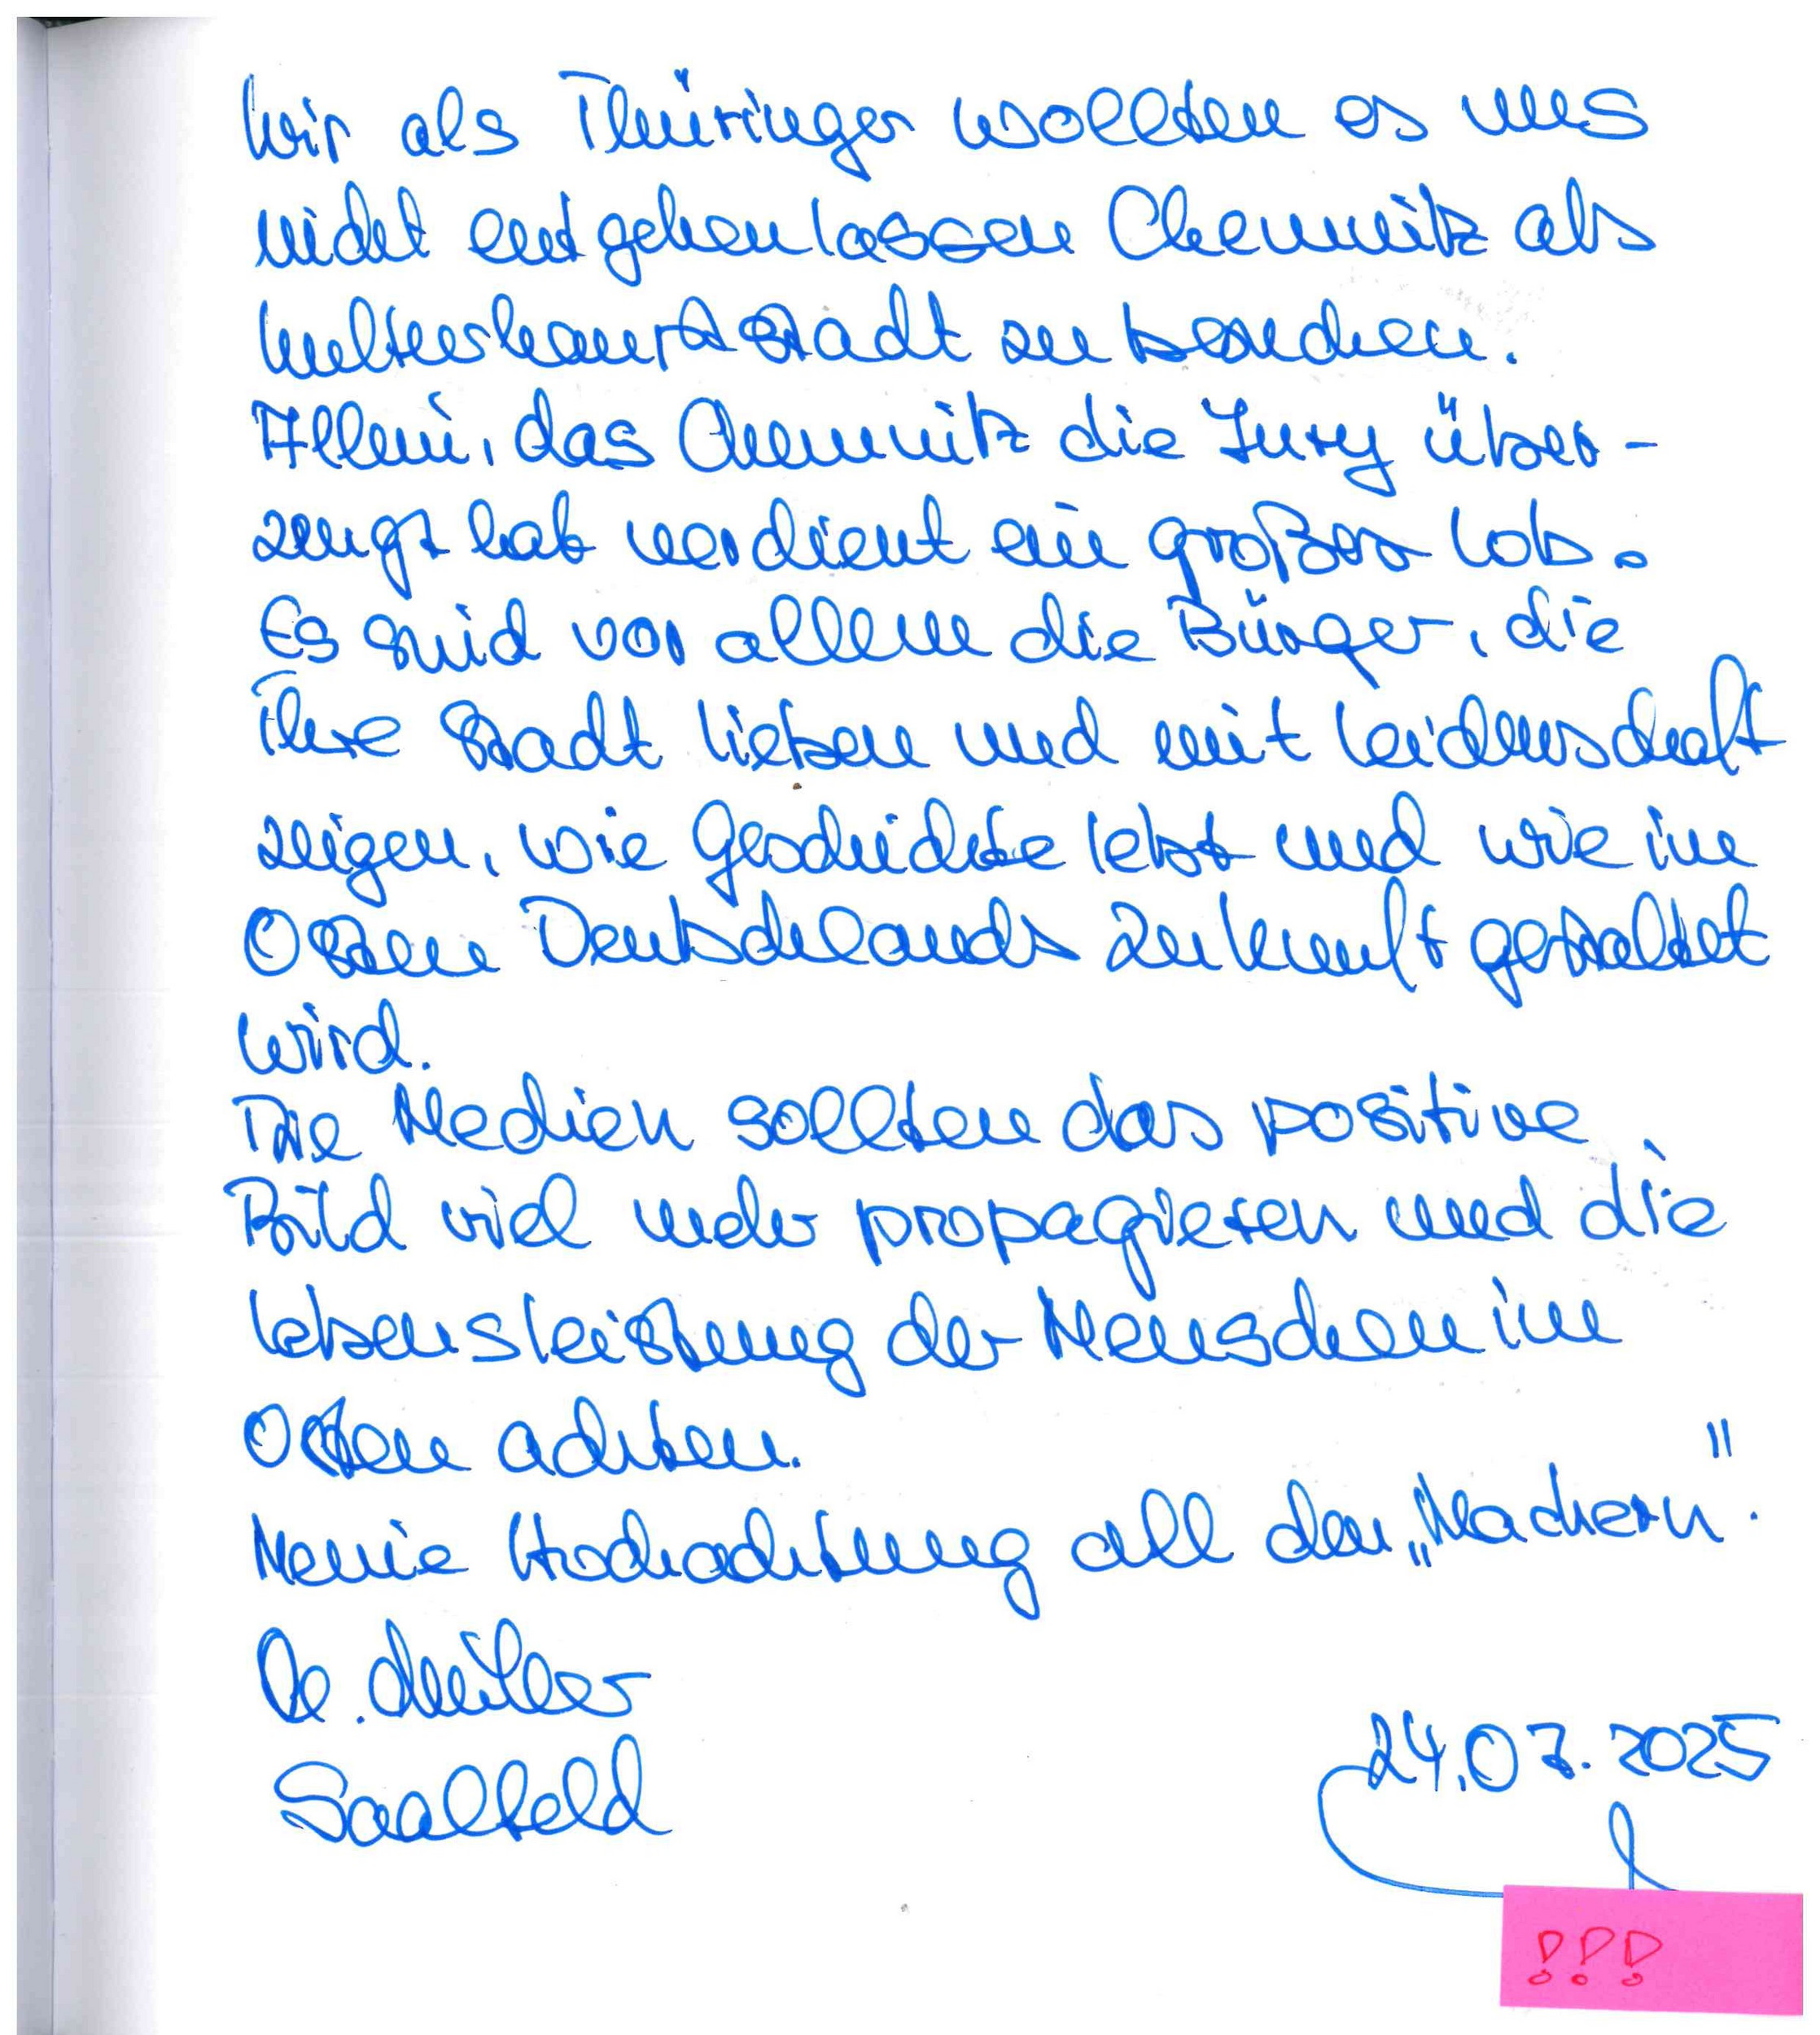 Wir als Thüringer wollten es uns
nicht entgehen lassen Chemnitz als
Kulturhauptstadt zu besuchen.
Allein, das Chemnitz die Jury über-
zeugt hat verdient ein großes Lob.
Es sind vor allem die Bürger, die
Ihre Stadt lieben und mit Leidenschaft
zeigen, wie Geschichte lebt und wie im
Osten Deutschlands Zukunft gestaltet
wird.
Die Medien sollten das positive
Bild viel mehr propagieren und die
Lebensleistung der Menschen im
Osten achten.
Meine Hochachtung all den „Machern".
Müller
Saalfeld
24.07.2025
!!!